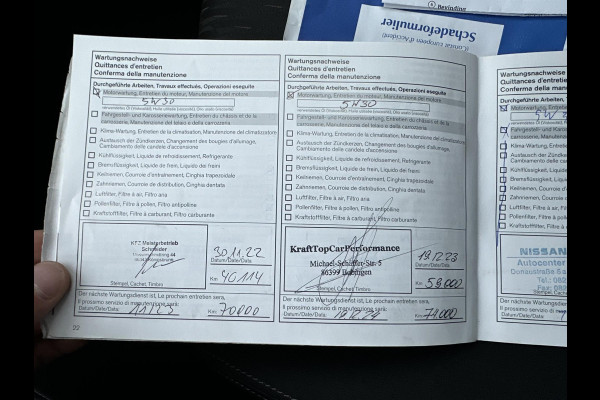 Bevindingen
(Constat européen d'Accident)
Schadeformulier
Wartungsnachweise
Quittances d'entretien
Conferma della manutenzione
Durchgeführte Arbeiten, Travaux effectués, Operazioni eseguite
Motorwartung, Entretien du moteur, Manutenzione del motore
5W30
Fahrgestell- und Karosseriewartung, Entretien du châssis et de la
carrosserie, Manutenzione del telaio e della carrozzeria
Klima-Wartung, Entretien de la climatisation, Manutenzione del climatizzatore
Austausch der Zündkerzen, Changement des bougies d'allumage,
Cambiamento delle candele d'accensione
Kühlflüssigkeit, Liquide de refroidissement, Refrigerante
Bremsflüssigkeit, Liquide de frein, Liquido dei freini
Keilriemen, Courroie d'entraînement, Cinghia trapezoidale
Zahnriemen, Courroie de distribution, Cinghia dentata
Luftfilter, Filtre à air, Filtro aria
Pollenfilter, Filtre à pollen, Filtro antipolline
Kraftstofffilter, Filtre à carburant, Filtro carburante
KFZ Meisterbetrieb
Schneider
Stempel, Cachet, Timbro
30.11.22
Datum/Date/Data
Km: 40114
Der nächste Wartungsdienst ist, Le prochain entretien sera,
Il prossimo servizio di manutenzione sarà:
Datum/Date/Data: 11/23 Km: 70000
22
Wartungsnachweise
Quittances d'entretien
Conferma della manutenzione
Durchgeführte Arbeiten, Travaux effectués, Operazioni eseguite
Motorwartung, Entretien du moteur, Manutenzione del motore
5W30
Fahrgestell- und Karosseriewartung, Entretien du châssis et de la
carrosserie, Manutenzione del telaio e della carrozzeria
Klima-Wartung, Entretien de la climatisation, Manutenzione del climatizzatore
Austausch der Zündkerzen, Changement des bougies d'allumage,
Cambiamento delle candele d'accensione
Kühlflüssigkeit, Liquide de refroidissement, Refrigerante
Bremsflüssigkeit, Liquide de frein, Liquido dei freini
Keilriemen, Courroie d'entraînement, Cinghia trapezoidale
Zahnriemen, Courroie de distribution, Cinghia dentata
Luftfilter, Filtre à air, Filtro aria
Pollenfilter, Filtre à pollen, Filtro antipolline
Kraftstofffilter, Filtre à carburant, Filtro carburante
KraftTopCarPerformance
Michael-Schäffer-Str. 5
86399 Bobingen
Stempel, Cachet, Timbro
19.12.23
Datum/Date/Data
Km: 59.000
Der nächste Wartungsdienst ist, Le prochain entretien sera,
Il prossimo servizio di manutenzione sarà:
Datum/Date/Data: 12.24 Km: 74.000
Wartungsnachweise
Quittances d'entretien
Conferma della manu
Durchgeführte Arbeiten, Trav
Motorwartung, Entretien
5W
Fahrgestell- und Karosse
carrosserie, Manutenzion
Klima-Wartung, Entretien
Austausch der Zündkerzen
Cambiamento delle cande
Kühlflüssigkeit, Liquide de
Bremsflüssigkeit, Liquide
Keilriemen, Courroie d'en
Zahnriemen, Courroie de
Luftfilter, Filtre à air, Filtro
Pollenfilter, Filtre à pollen
Kraftstofffilter, Filtre à car
NISSAN
Autocenter
Donaustraße 6 a
Tel.: 082
Stempel, Cachet
Der nächste Wartungsdienst
Il prossimo servizio di manu
Datum/Date/Data: